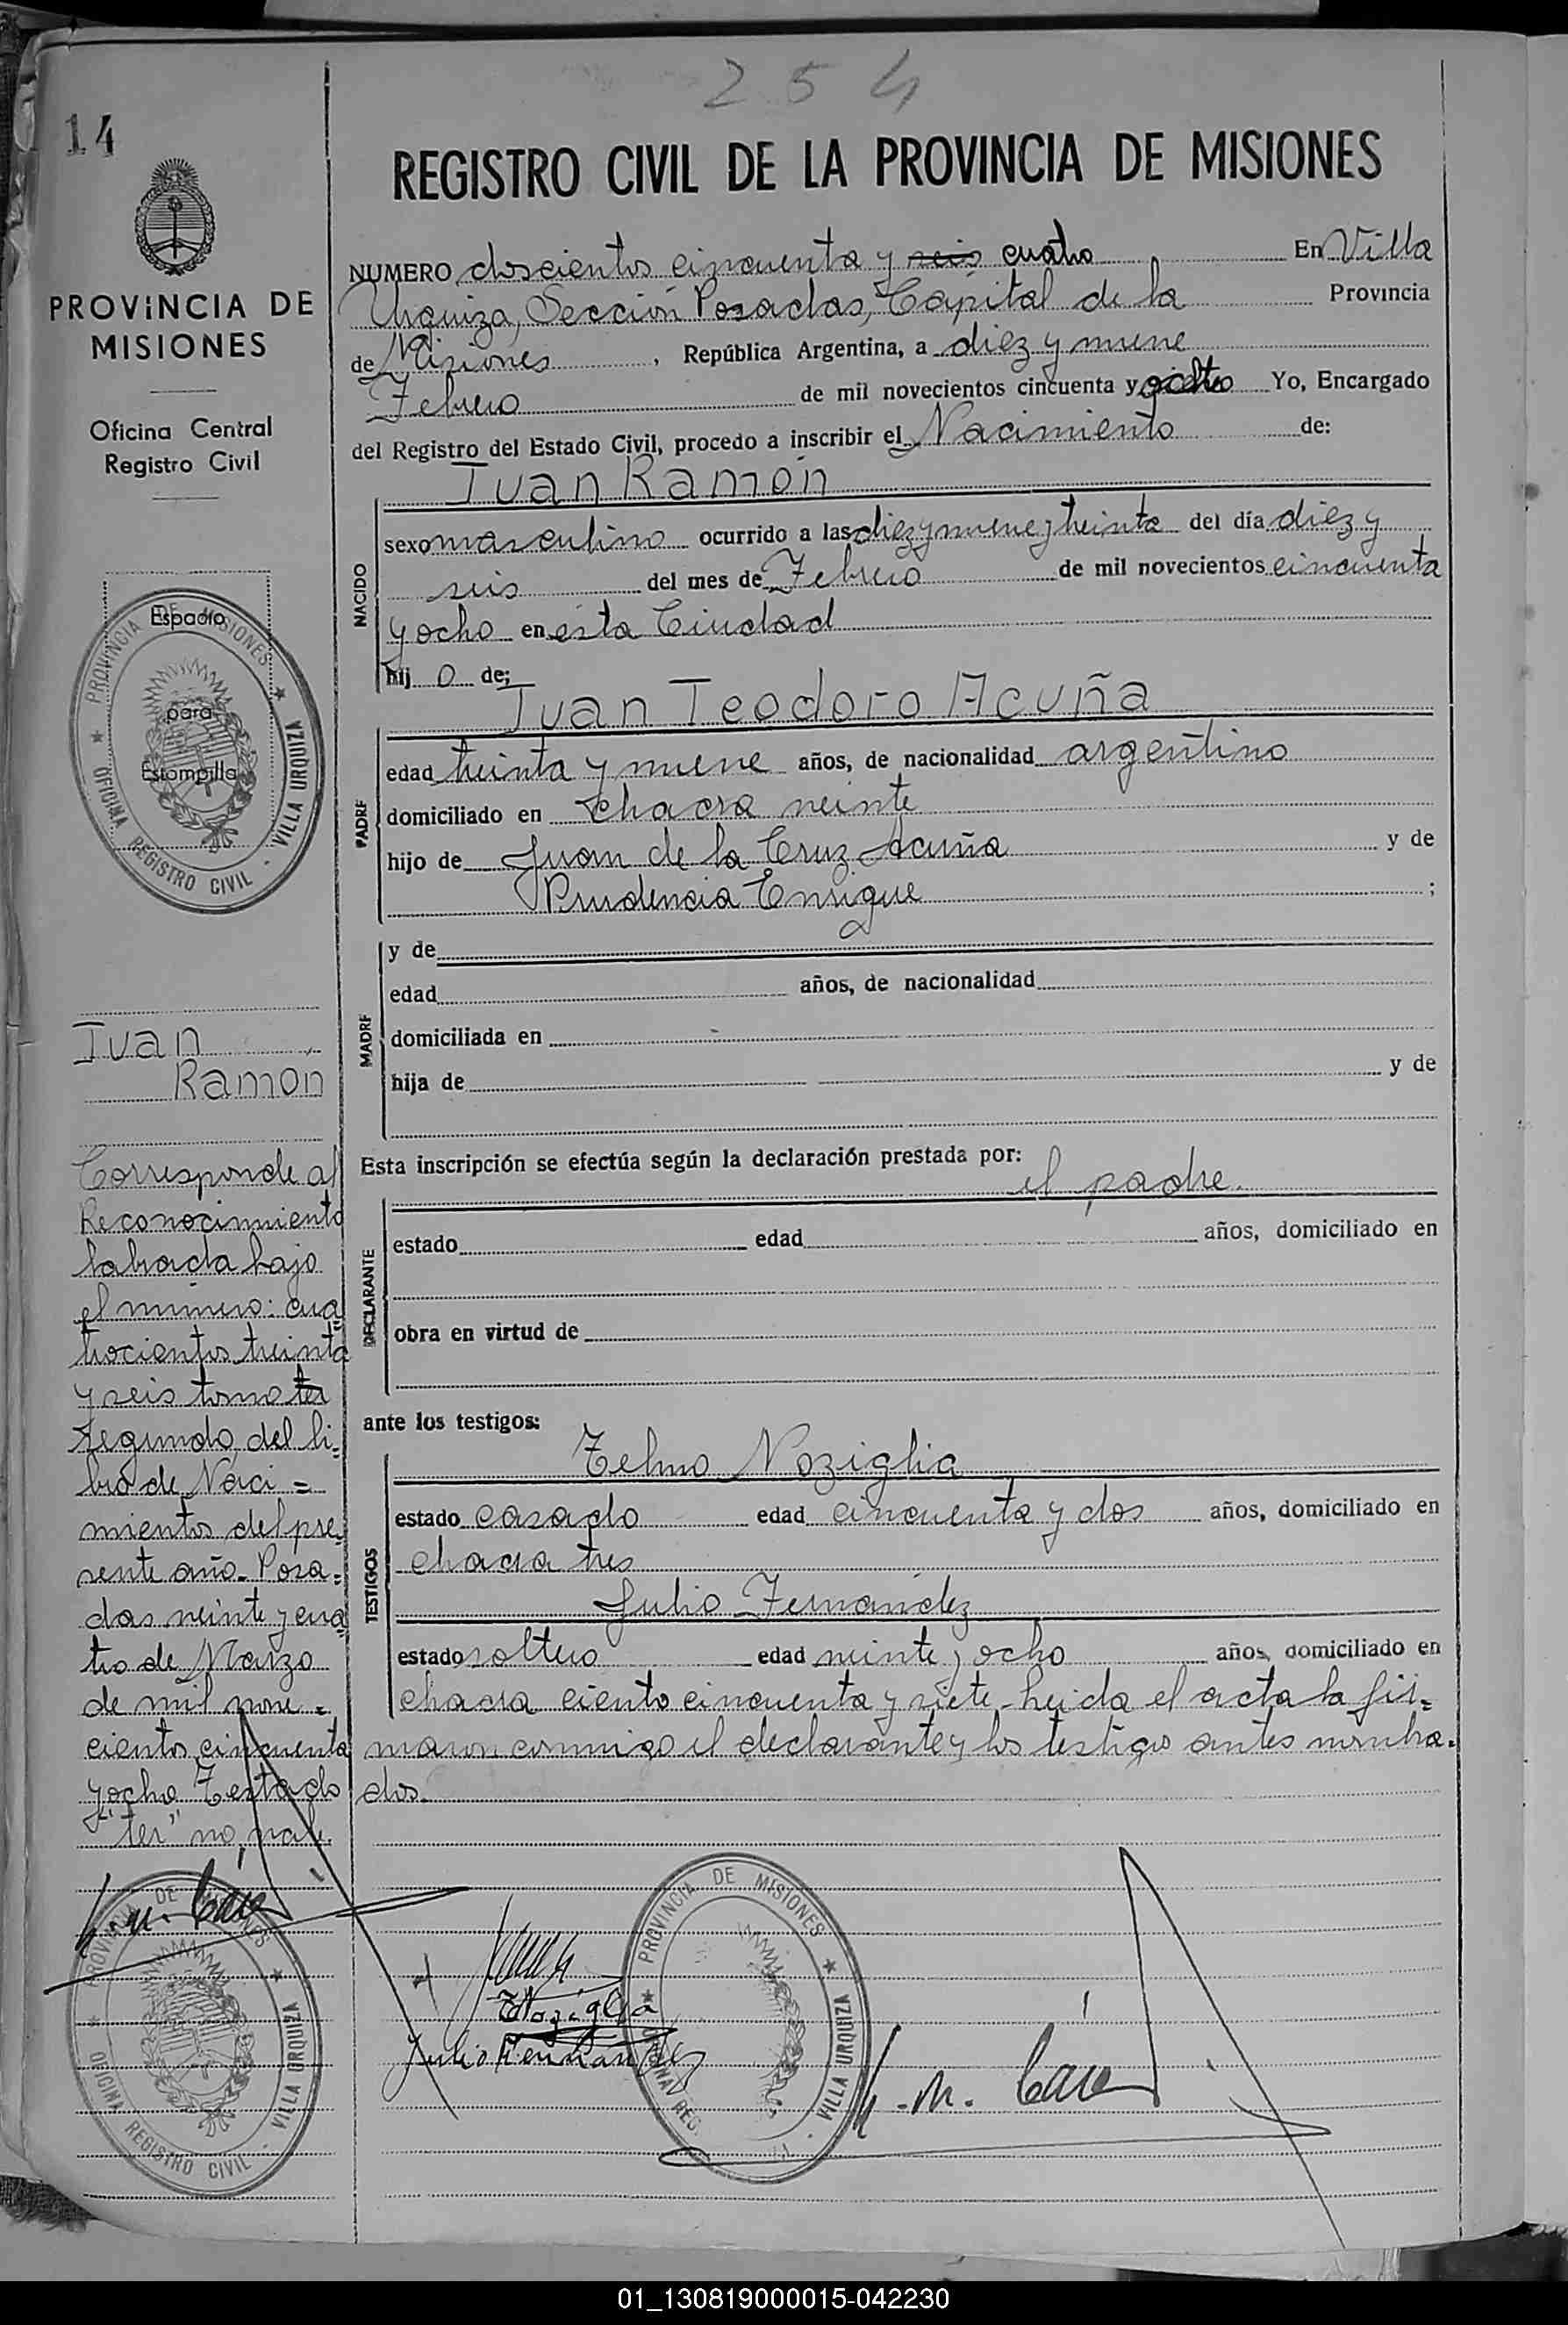 254
14
REGISTRO CIVIL DE LA PROVINCIA DE MISIONES
PROVINCIA DE
MISIONES
Oficina Central
Registro Civil
NUMERO doscientos cincuenta y seis cuatro En Villa
Urquiza, Sección Posadas, Capital de la Provincia
de Misiones, República Argentina, a diez y nueve
Febrero de mil novecientos cincuenta y ocho Yo, Encargado
del Registro del Estado Civil, procedo a inscribir el Nacimiento de:
Juan Ramón
NACIDO
sexo masculino ocurrido a las diez y nueve y treinta del día diez y
seis del mes de Febrero de mil novecientos cincuenta
y ocho en esta Ciudad
hij o de;
Juan Teodoro Acuña
PADRE
edad treinta y nueve años, de nacionalidad argentino
domiciliado en chacra veinte
hijo de Juan de la Cruz Acuña y de
Prudencia Enrique ;
MADRE
y de
edad años, de nacionalidad
domiciliada en
hija de y de
Esta inscripción se efectúa según la declaración prestada por:
el padre.
DECLARANTE
estado edad años, domiciliado en
obra en virtud de
ante los testigos:
Telmo Noziglia
TESTIGOS
estado casado edad cincuenta y dos años, domiciliado en
chacra tres
Julio Fernandez
estado soltero edad veinte y ocho años, domiciliado en
chacra ciento cincuenta y siete - Leida el acta la fir=
maron conmigo el declarante y los testigos antes nombra=
dos.
Espacio
para
Estampilla
PROVINCIA DE MISIONES
OFICINA REGISTRO CIVIL - VILLA URQUIZA
Juan
Ramon
Corresponde al
Reconocimiento
labrada bajo
el número: cua=
trocientos treinta
y seis tomo ter
segundo, del li=
bro de Naci=
mientos del pre=
sente año. Posa=
das, veinte y cua=
tro de Marzo
de mil nove=
cientos cincuenta
y ocho. Testado
"ter" no vale.
PROVINCIA DE MISIONES
OFICINA REGISTRO CIVIL - VILLA URQUIZA
TNoziglia
Julio Fernandez
PROVINCIA DE MISIONES
VILLA URQUIZA
01_130819000015-042230